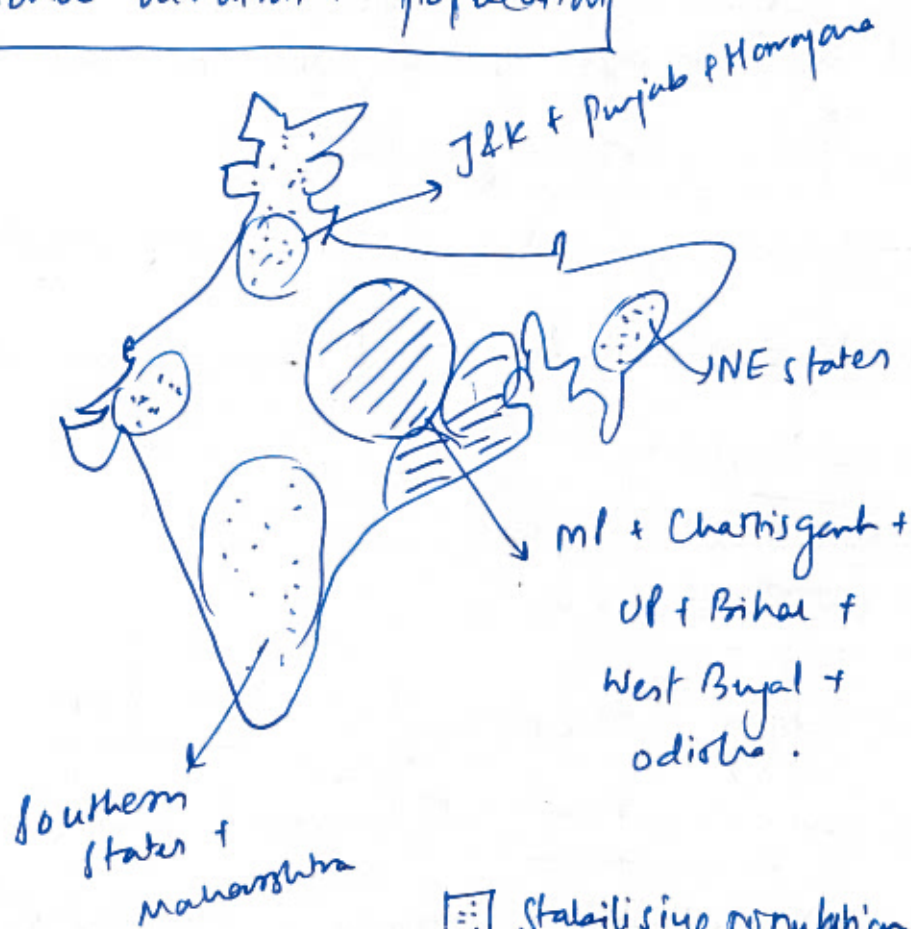 variation population
J&K + Punjab & Harrayana
NE states
MP + Chattisgarh +
UP + Bihar +
West Bengal +
odisha.
Southern
States +
Maharashtra
Stabilising population